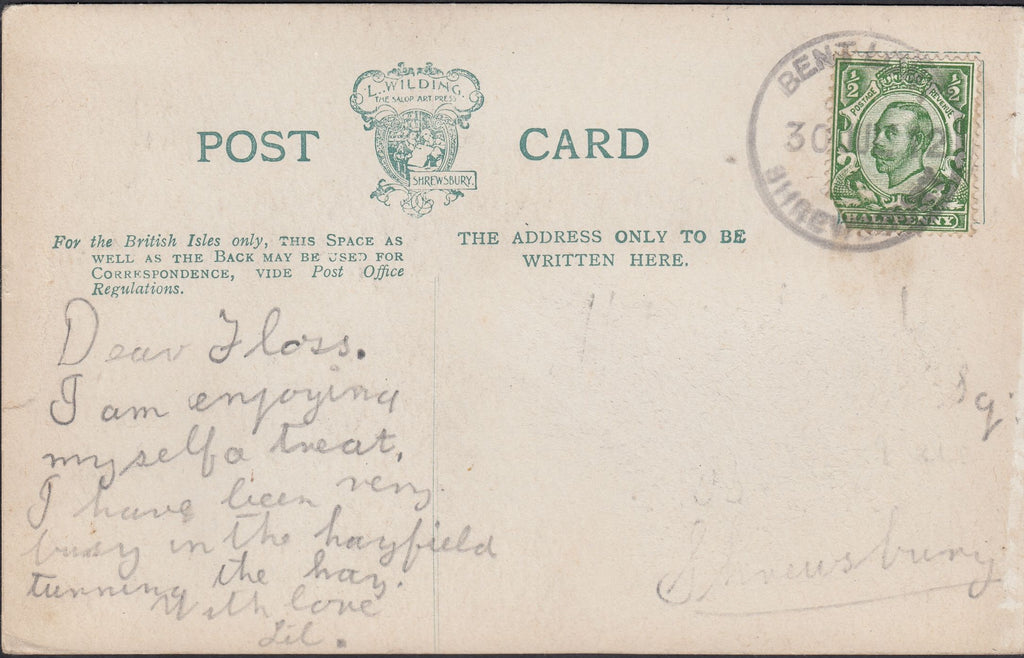 L. WILDING.
THE SALOP ART PRESS
SHREWSBURY.
POST CARD
For the British Isles only, THIS SPACE AS
WELL AS THE BACK MAY BE USED FOR
CORRESPONDENCE, VIDE Post Office
Regulations.
THE ADDRESS ONLY TO BE
WRITTEN HERE.
30
½ ½
POSTAGE REVENUE
HALFPENNY
Dear Floss.
I am enjoying
myself a treat.
I have been very
busy in the hayfield
turnning the hay.
With love
Lil.
Sq.
Shrewsbury